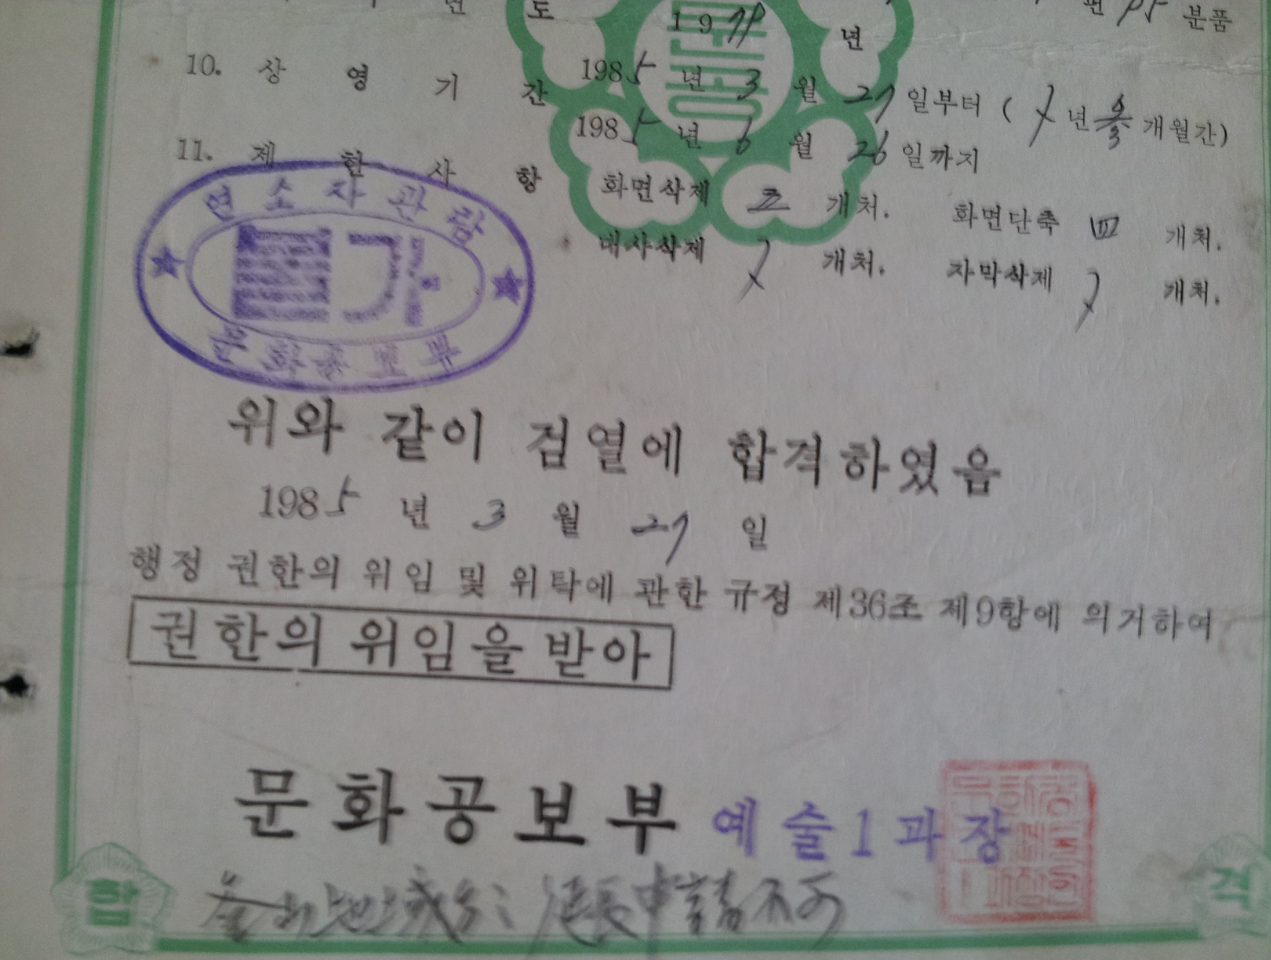 년 도 19 년 편 95 분품
10. 상 영 기 간 1985 년 3 월 27 일부터 ( 년 3 개월간)
1985 년 6 월 26 일까지
11. 제 한 사 항 화면삭제 개처. 화면단축 四 개처.
대사삭제 개처. 자막삭제 개처.
연소자관람
불가
문화공보부
위와 같이 검열에 합격하였음
1985 년 3 월 27 일
행정 권한의 위임 및 위탁에 관한 규정 제36조 제9항에 의거하여
권한의 위임을 받아
문화공보부 예술1과장
釜山地域分: 延長申請不可
합 격